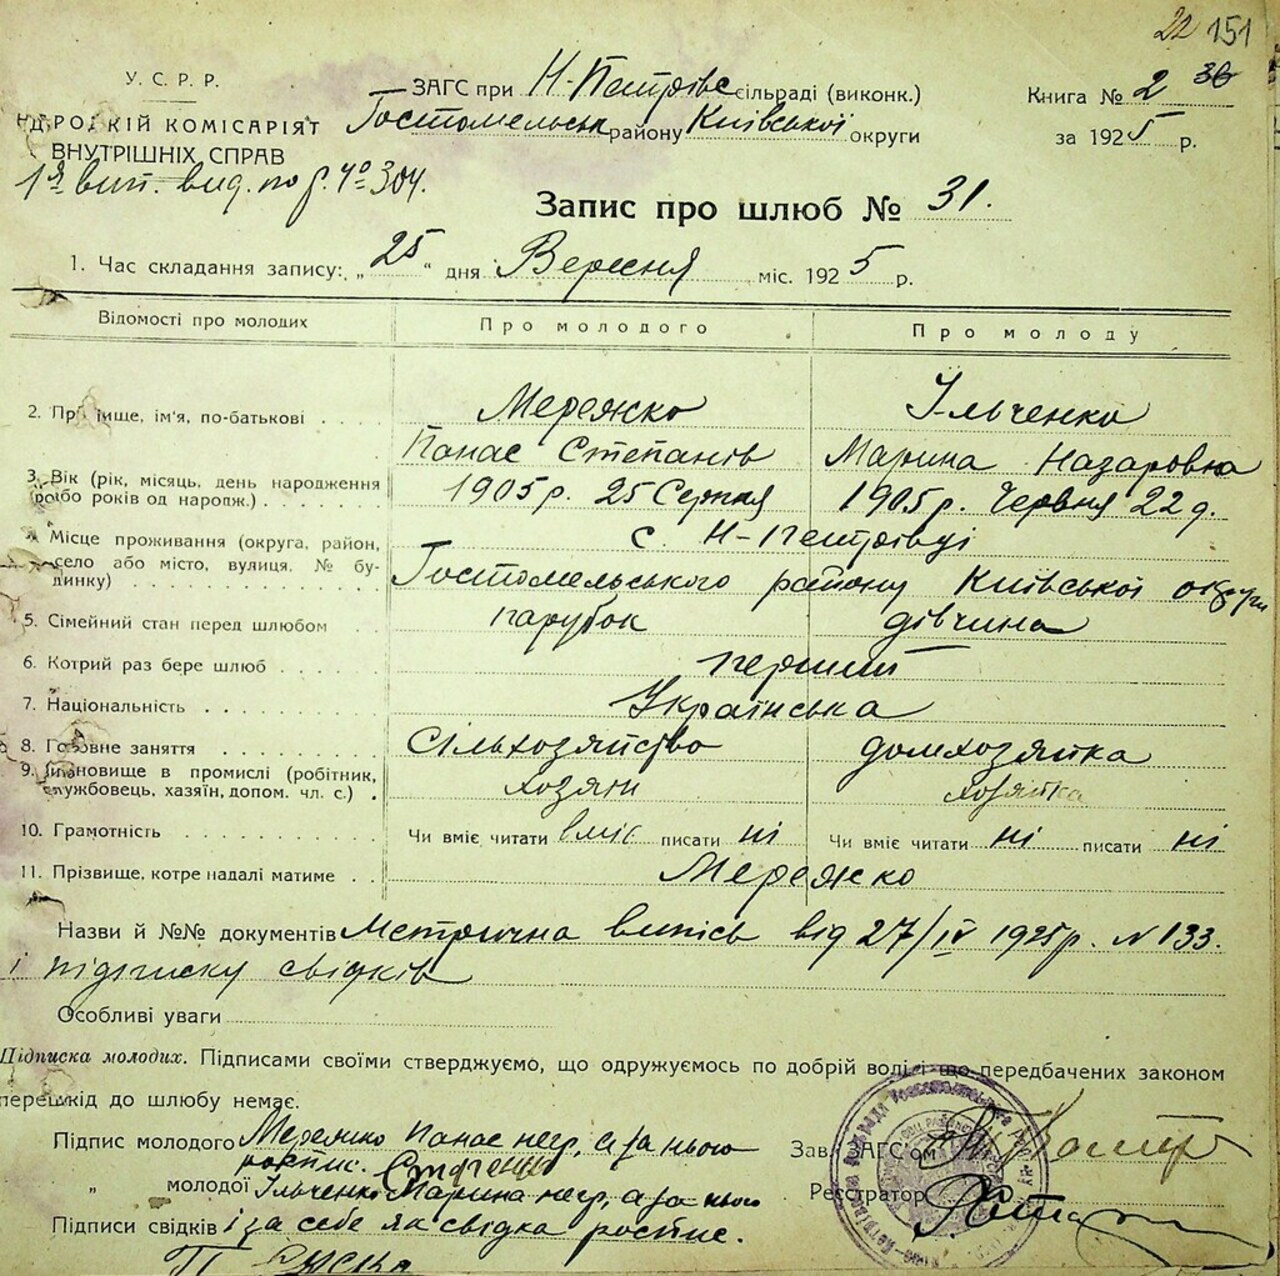 22 151
У. С. Р. Р.
НАРОДНІЙ КОМІСАРІЯТ
ВНУТРІШНІХ СПРАВ
1я вип. вид. по р. № 304.
ЗАГС при Н-Петрівс сільраді (виконк.)
Гостомельськ району Київської округи
Книга № 2 36
за 1925 р.
Запис про шлюб № 31.
1. Час складання запису: „25“ дня Вересня міс. 1925 р.
Відомості про молодих Про молодого Про молоду
2. Прізвище, ім'я, по-батькові . . . Мережко Ільченко
Панас Степанів Марина Назаровна
3. Вік (рік, місяць, день народження або років од народж.) . . . . . . . 1905 р. 25 Серпня 1905 р. Червня 22 д.
4. Місце проживання (округа, район, село або місто, вулиця. № будинку) . . . . . . . . с. Н-Петрівці
Гостомельського району Київської округи
5. Сімейний стан перед шлюбом . . парубок дівчина
6. Котрий раз бере шлюб . . . . перший
7. Національність . . . . . . . . Українська
8. Головне заняття . . . . . . . . Сільхозяйство домхозяйка
9. Становище в промислі (робітник, службовець, хазяїн, допом. чл. с.) . хозяін хозяйка
10. Грамотність . . . . . . . . . Чи вміє читати вміє писати ні Чи вміє читати ні писати ні
11. Прізвище, котре надалі матиме . . Мережко
Назви й №№ документів Метрична випісь від 27/IV 1925 р. N 133.
і підписку свідків
Особливі уваги
Підписка молодих. Підписами своїми стверджуємо, що одружуємось по добрій волі і що передбачених законом
перешкід до шлюбу немає.
Підпис молодого Мережко Панас негр, а за нього
розпис.
„ молодої Ільченко Марина негр, а за нього
Підписи свідків і за себе як свідка роспис.
Зав. ЗАГС'ом
Реєстратор